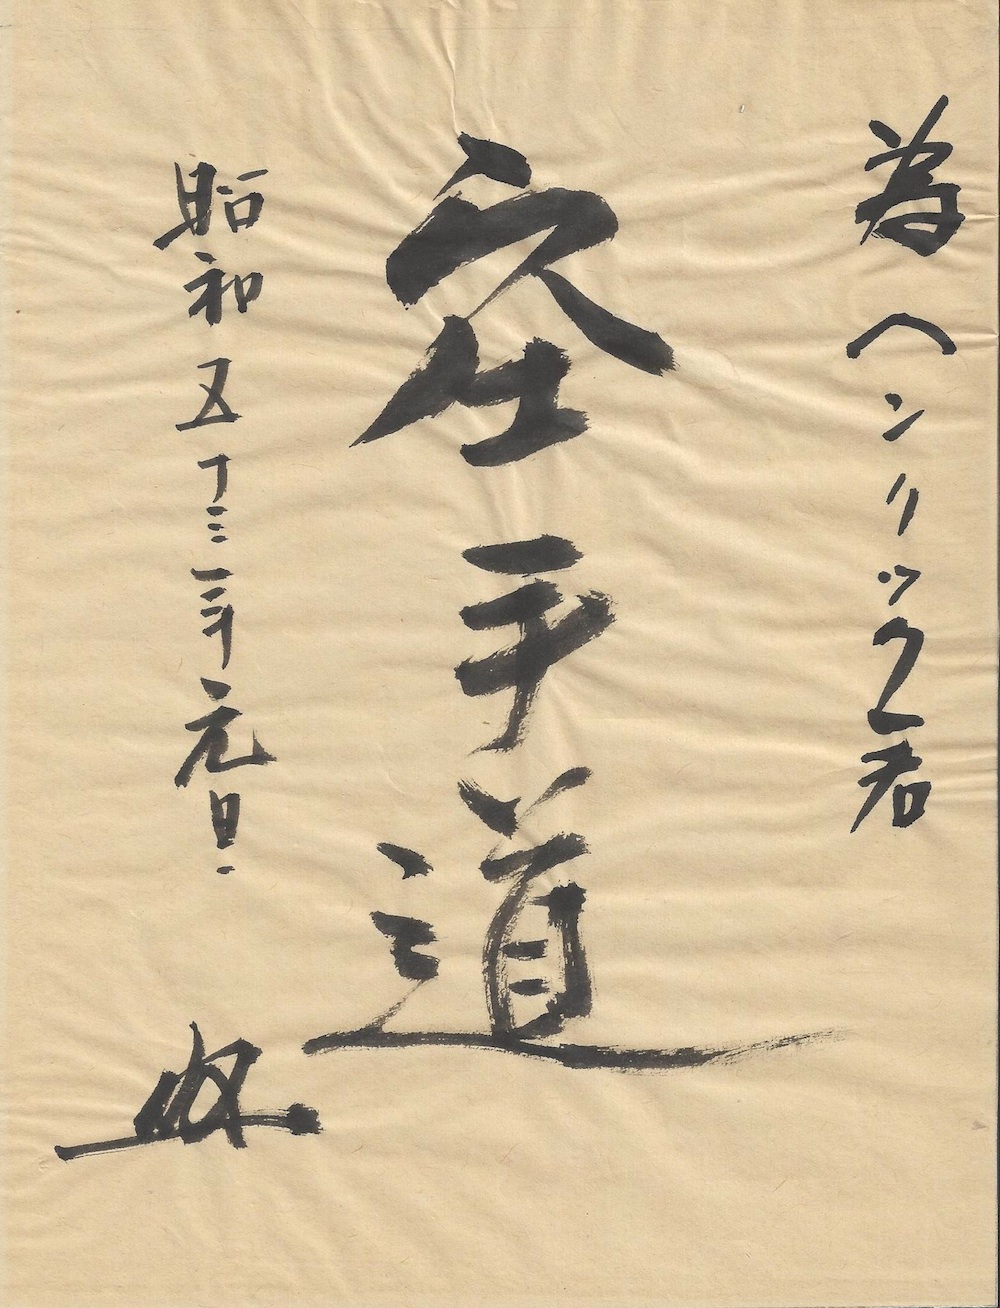 為ヘンリック君
空手道
昭和五十三年元旦